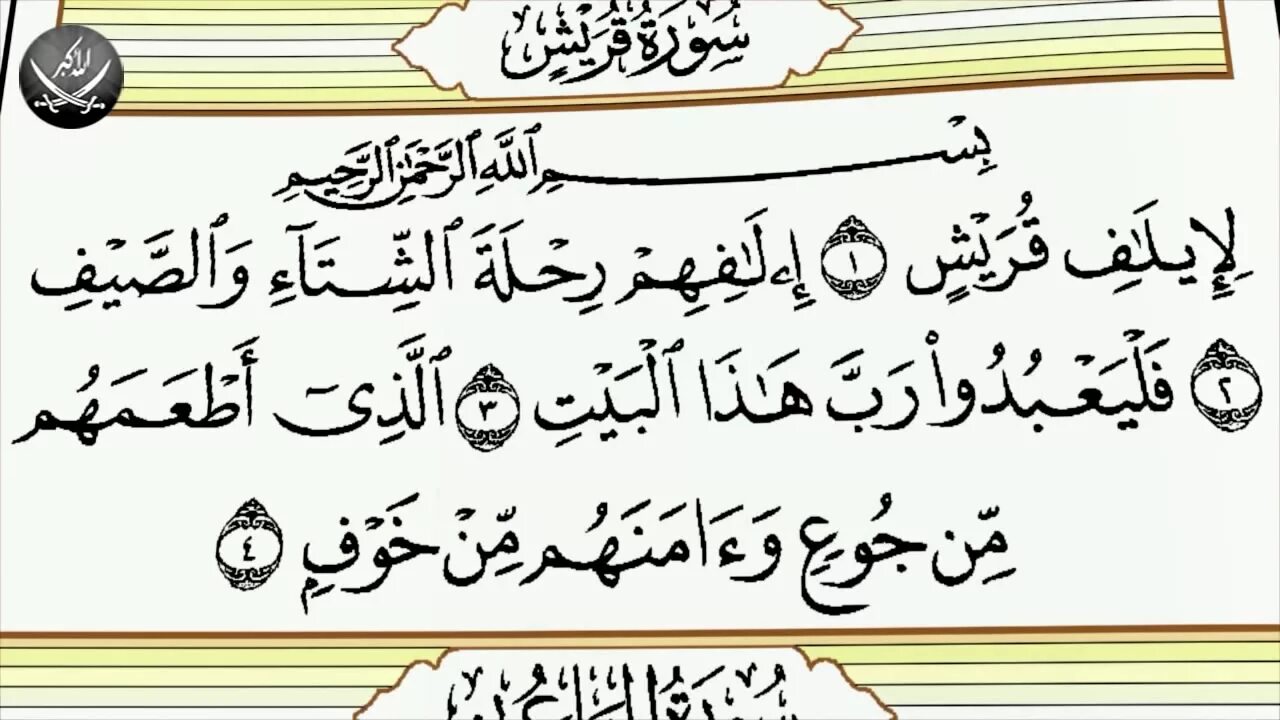 سُورَةُ قُرَيْشٍ
الله أكبر
بِسْمِ ٱللَّهِ ٱلرَّحْمَٰنِ ٱلرَّحِيمِ
لِإِيلَٰفِ قُرَيْشٍ ١ إِۦلَٰفِهِمْ رِحْلَةَ ٱلشِّتَآءِ وَٱلصَّيْفِ
٢ فَلْيَعْبُدُوا۟ رَبَّ هَٰذَا ٱلْبَيْتِ ٣ ٱلَّذِىٓ أَطْعَمَهُم
مِّن جُوعٍ وَءَامَنَهُم مِّنْ خَوْفٍۭ ٤
سُورَةُ المَاعُونِ